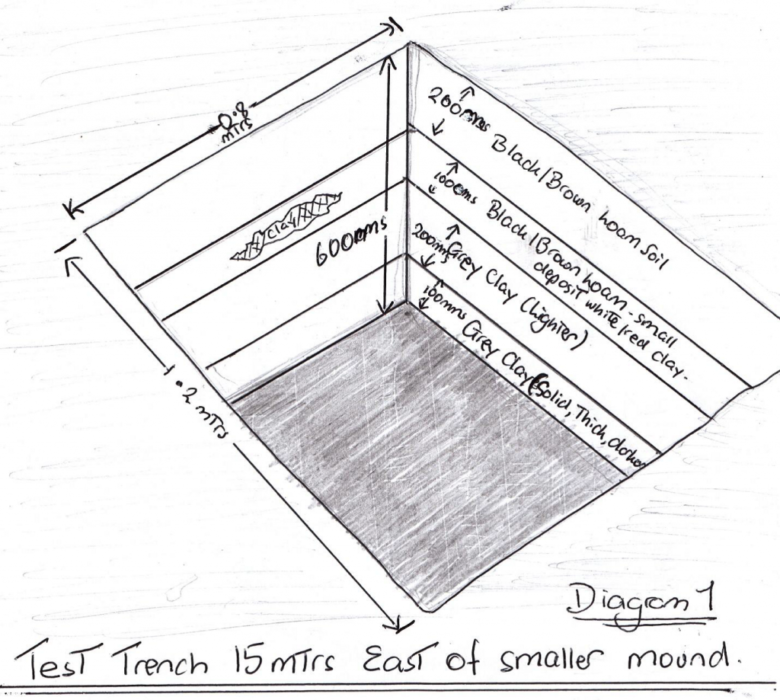 0.8
mtrs
200mms
Black/Brown loam soil
100mms
Black/Brown loam - small
deposit white/red clay.
clay
600mms
200mms
Grey Clay (lighter)
100mms
Grey Clay (Solid, Thick, darker
1.2 mtrs
Diagram 1
Test Trench 15mtrs East of smaller mound.